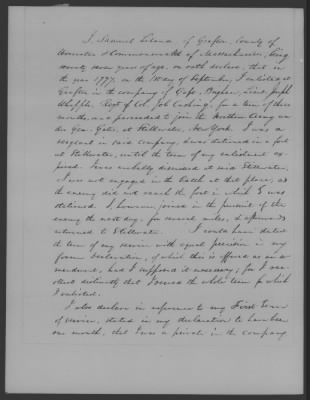 I, Samuel Leland of Grafton, County of
Worcester & Commonwealth of Massachusetts, being
seventy seven years of age, on oath declare, that in
the year 1777, on the day of September, I enlisted at
Grafton in the company of Capt. Lieut. Joseph
Whipple, Regt of Col. Job Cushing, for a term of three
months, and proceeded to join the Northern Army un-
der Gen. Gates, at Stillwater, New York. I was a
sergeant in said company, & was detained in a fort
at Stillwater, until the term of my enlistment ex-
pired. I was verbally discharged at said Stillwater.
I was not engaged in the battle at that place, as
the enemy did not reach the fort in which I was
stationed. I, however, joined in the pursuit of the
enemy the next day, for several miles, & afterwards
returned to Stillwater. I could have stated
the term of my service with equal precision in my
former declaration, of which this is offered as an a-
mendment, had I supposed it necessary; for I rec-
ollect distinctly that I served the whole term for which
I enlisted.
I also declare in reference to my First Term
of service, stated in my declaration to have been
one month, that I was a private in the company